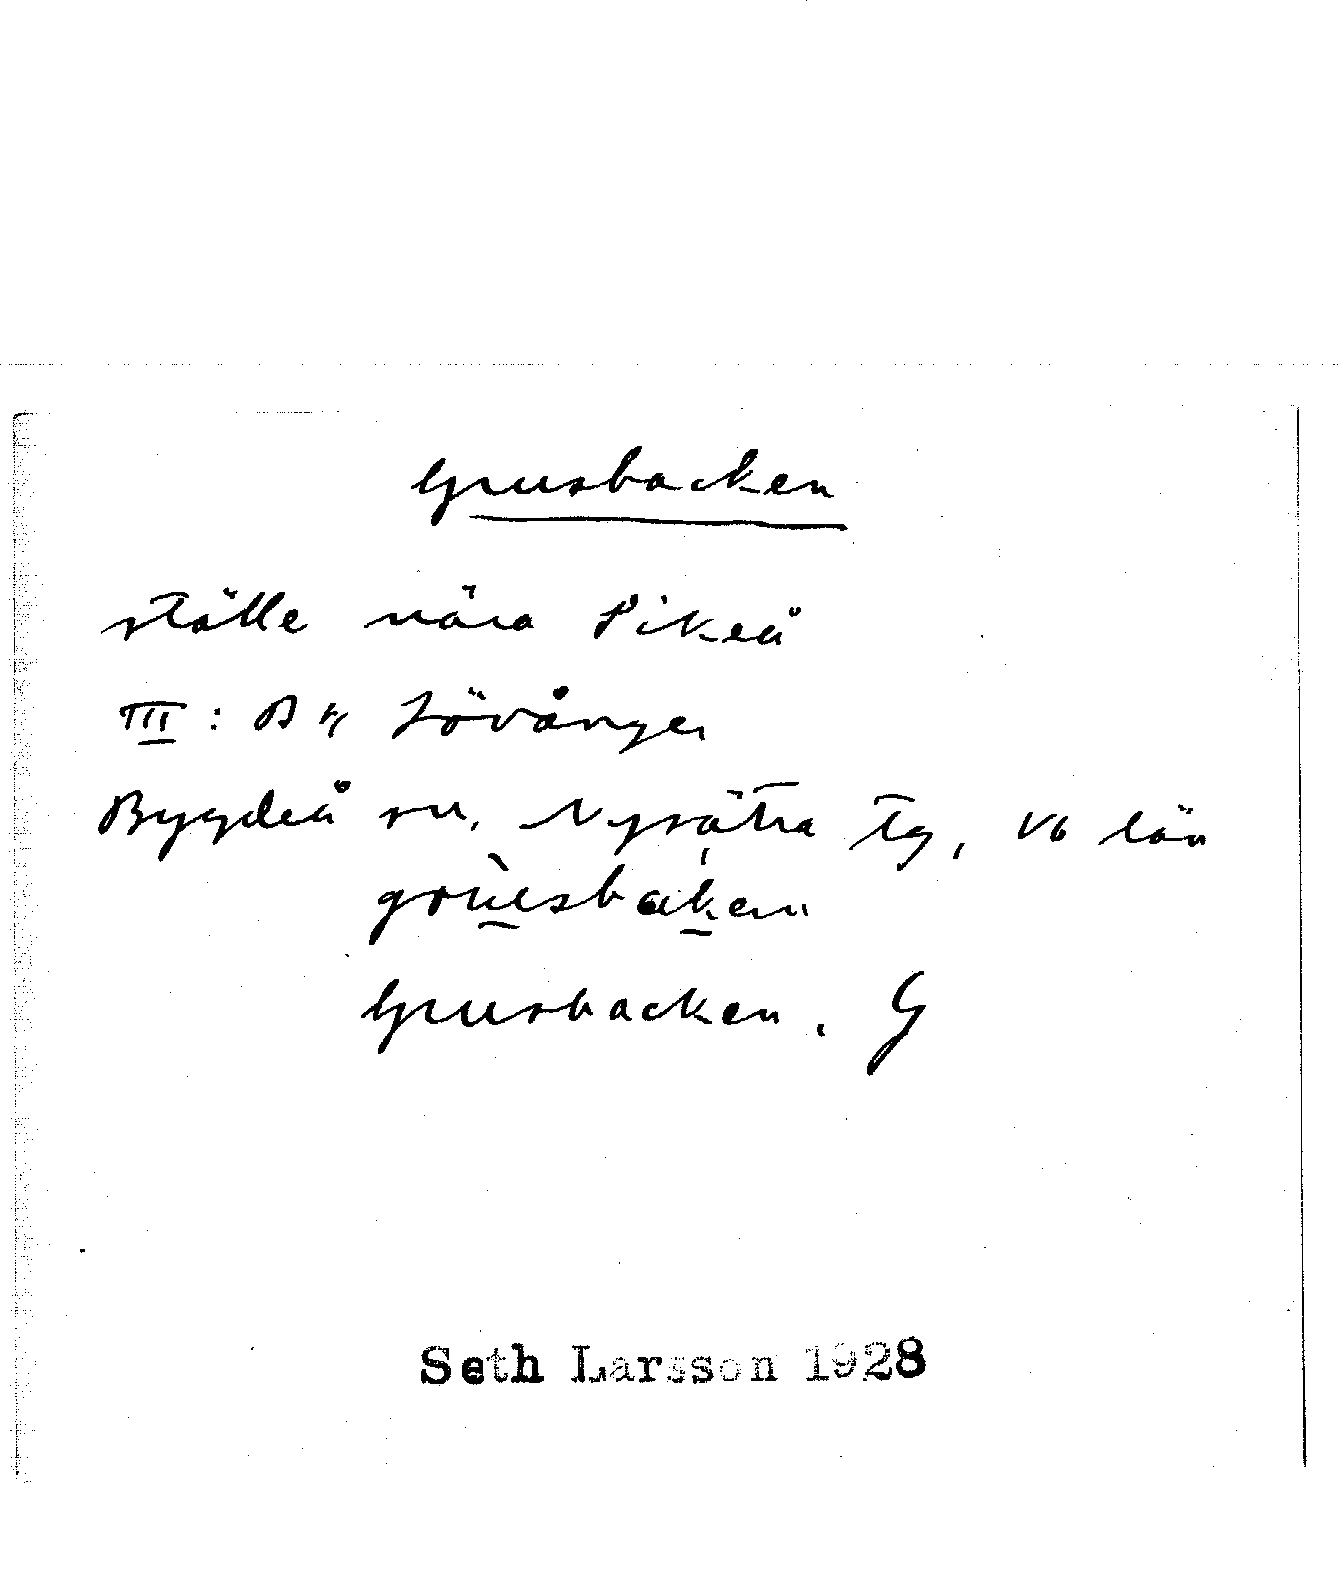 Grusbacken
ställe nära Pikeå
III: B Lövånger
Bygdeå sn, Nysätra tg, Vb län
Grusbacken. G
Seth Larsson 1928